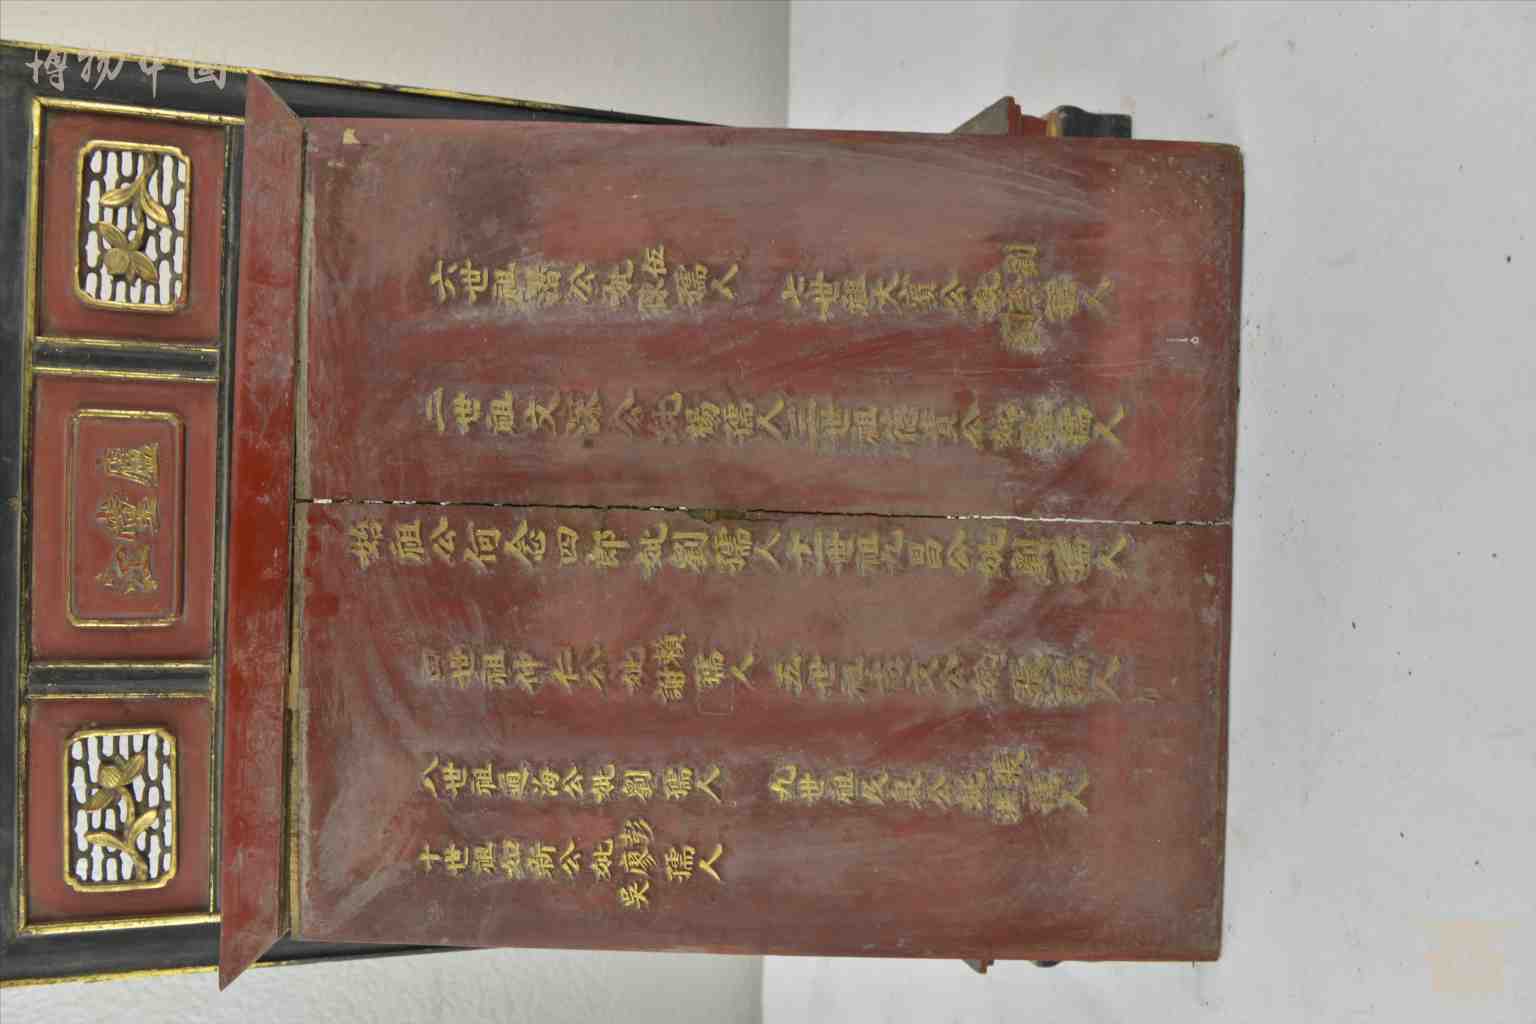 博物中国
廬江堂
六世祖公妣伍陳孺人 七世祖大公妣劉孺人
二世祖文深公妣楊孺人三世祖貴公妣孺人
始祖公何念四郎妣劉孺人十一世祖九昌公妣劉孺人
四世祖仲仁公妣賴謝孺人 五世祖文公妣張孺人
八世祖海公妣劉孺人 九世祖公妣張孺人
十世祖如新公妣彭廖吳孺人